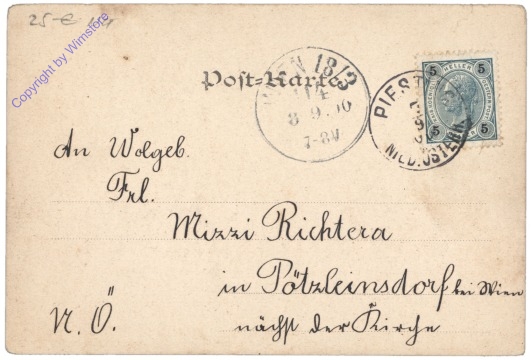 25-€
Copyright by Wimstore
Post=Karte
WIEN 18/3
8 9.00
7-8V
PIEST
NIED.ÖSTERR.
5 HELLER 5
5 5
An Wolgeb.
Frl.
Mizzi Richtera
in Pötzleinsdorf bei Wien
N.Ö. nächst der Kirche